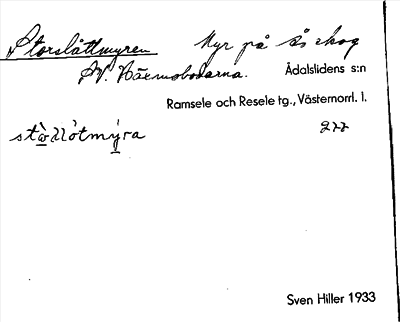 Storslåttmyren Myr på Ås skog
NV. Näsmobodarna. Ådalslidens s:n
Ramsele och Resele tg., Västernorrl. l.
277
Sven Hiller 1933